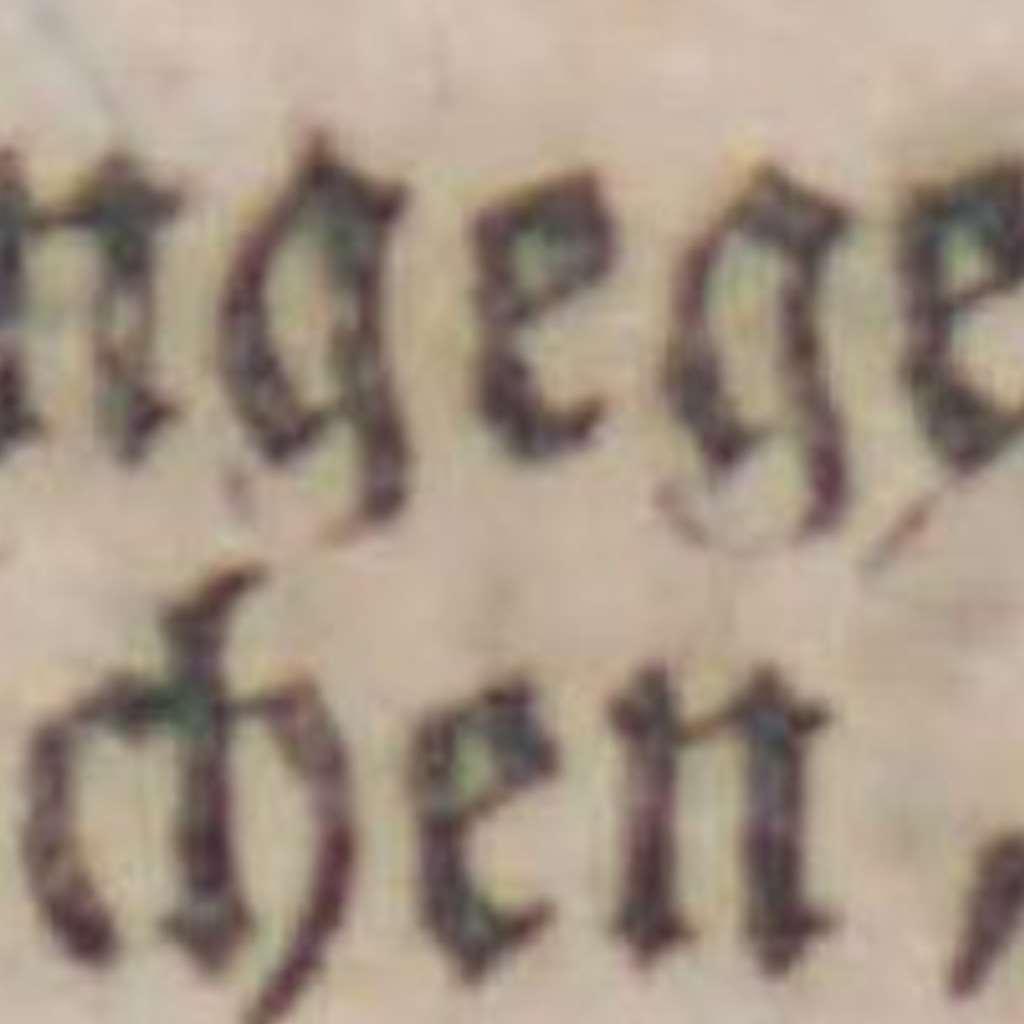 ngege
chen